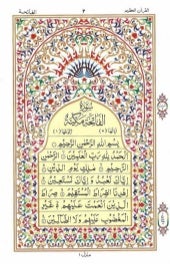 القرآن العظيم ٢ الفاتحة
سورة
الفاتحة مكية
بِسْمِ اللهِ الرَّحْمٰنِ الرَّحِيْمِ
اَلْحَمْدُ لِلّٰهِ رَبِّ الْعٰلَمِيْنَ الرَّحْمٰنِ
الرَّحِيْمِ مٰلِكِ يَوْمِ الدِّيْنِ
اِيَّاكَ نَعْبُدُ وَاِيَّاكَ نَسْتَعِيْنُ
اِهْدِنَا الصِّرَاطَ الْمُسْتَقِيْمَ صِرَاطَ
الَّذِيْنَ اَنْعَمْتَ عَلَيْهِمْ غَيْرِ
الْمَغْضُوْبِ عَلَيْهِمْ وَلَا الضَّآلِّيْنَ
منزل ١